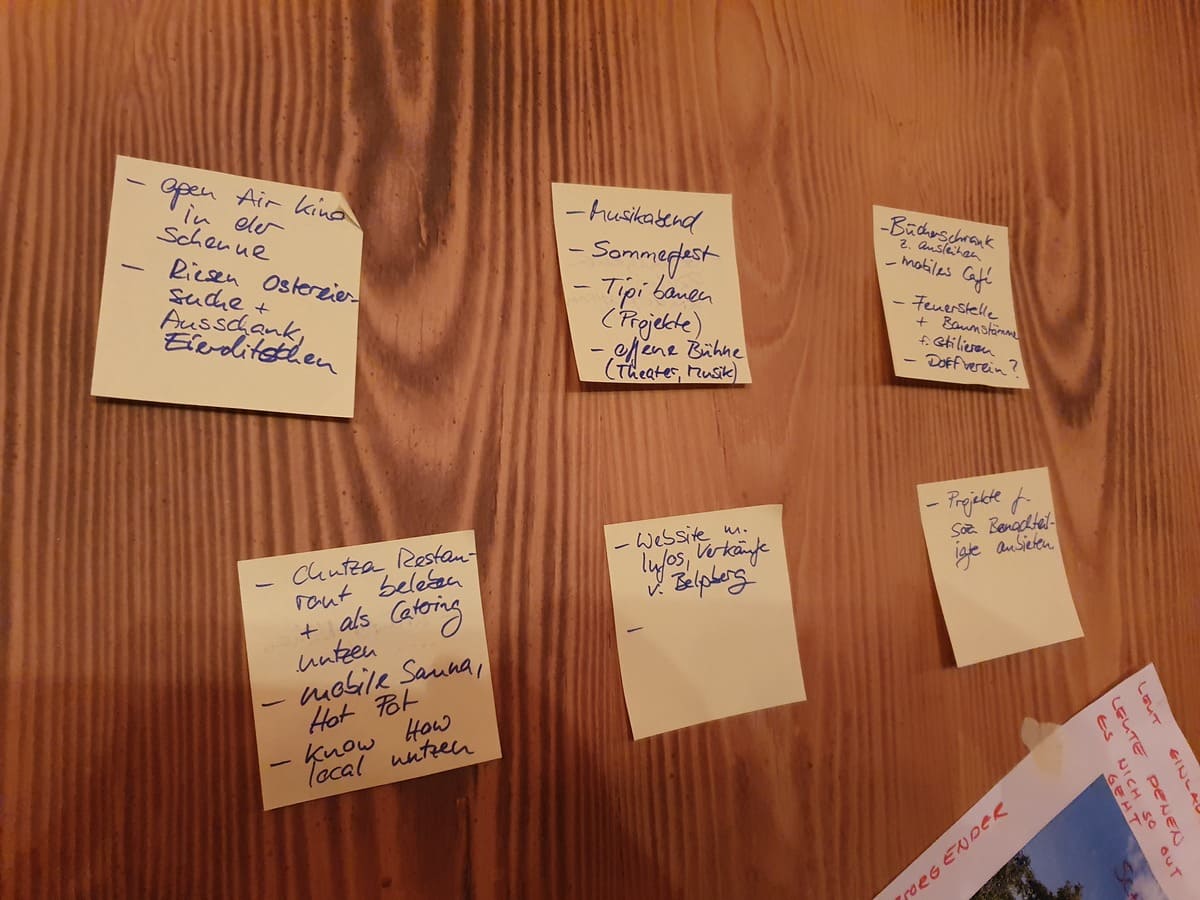 - Open Air Kino
in der
Scheune
- Riesen Ostereier-
suche +
Ausschank,
Eierditschen
- Musikabend
- Sommerfest
- Tipi bauen
(Projekte)
- offene Bühne
(Theater, Musik)
- Bücherschrank
z. ausleihen
- mobiles Café
- Feuerstelle
+ Baumstämme
- Dorfverein?
- Chutzen Restau-
rant beleben
+ als Catering
nutzen
- mobile Sauna,
Hot Pot
- Know How
local nutzen
- Website m.
Infos, Verkäufe
v. Belpberg
-
- Projekte f.
soz. Benachteil-
igte anbieten
LEUTE DENEN
ES NICH SO GUT
GEHT